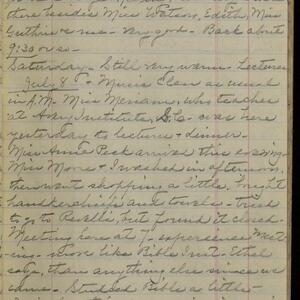 there besides Miss Watson, Edith, Miss
Guthrie & me - very good - Back about
9:30 or so -
Saturday - Still very warm - Lecture
July 8 - Music Class as usual
in A.M. Miss Merriam, who teaches
at Avery Institute, S.C. was here
yesterday to lecture & dinner.
Miss Annie Peck arrived this evening.
Miss Moore & I washed in afternoon,
then went shopping a little, bought
handkerchiefs and towels - tried
to go to Revell's, but found it closed.
Meeting here at 7, experience meet-
ing more like Bible Inst. that
sort, than anything else since we
came - Studied Bible a little -